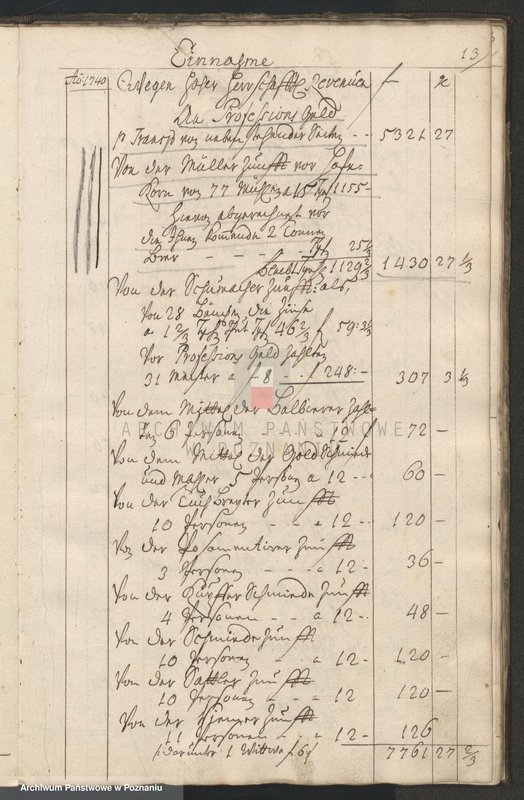 13
Einnahme
Ao 1740 Wegen Hoher Herrschafftl. Revenüen f x
An Professions Geld
p Transp von unten stehender Seiten - - 5321 27
Von der Müller Zunfft vor
Korn von 77 a 15 1155 -
Hievon abgerechnet vor
die 2 Tonnen
Bier - - - - 25 1/3
bleibt 1129 2/3 1430 27 1/3
Von der Schumacher Zunfft: als,
Von 28 Bäncken die Zinse
a 1 2/3 thut 46 2/3 f 59: 3 1/3
Vor Professions Geld zahlen
31 Meister a f 8 - - f 248: - 307 3 1/3
Von dem Mittel der Balbierer zah-
len 6 Persohnen a 12 72 -
Von dem Mittel der Goldschmiede
und Mahler 5 Persohnen a 12 - - 60 -
Von der Tuchbereyter Zunfft
10 Persohnen - - a 12 - - 120 -
Von der Posamentirer Zunfft
3 Persohnen - - - a 12 - 36 -
Von der Kupffer Schmiede Zunfft
4 Persohnen - - a 12 - 48 -
Von der Schmiede Zunfft
10 Persohnen - a 12 - 120 -
Von der Sattler Zunfft
10 Persohnen - a 12 120 -
Von der Riemer Zunfft
11 Persohnen - a 12 - 126
darunter 1 Wittwe f 6 7761 27 2/3
ARCHIWUM PAŃSTWOWE
W POZNANIU
Archiwum Państwowe w Poznaniu